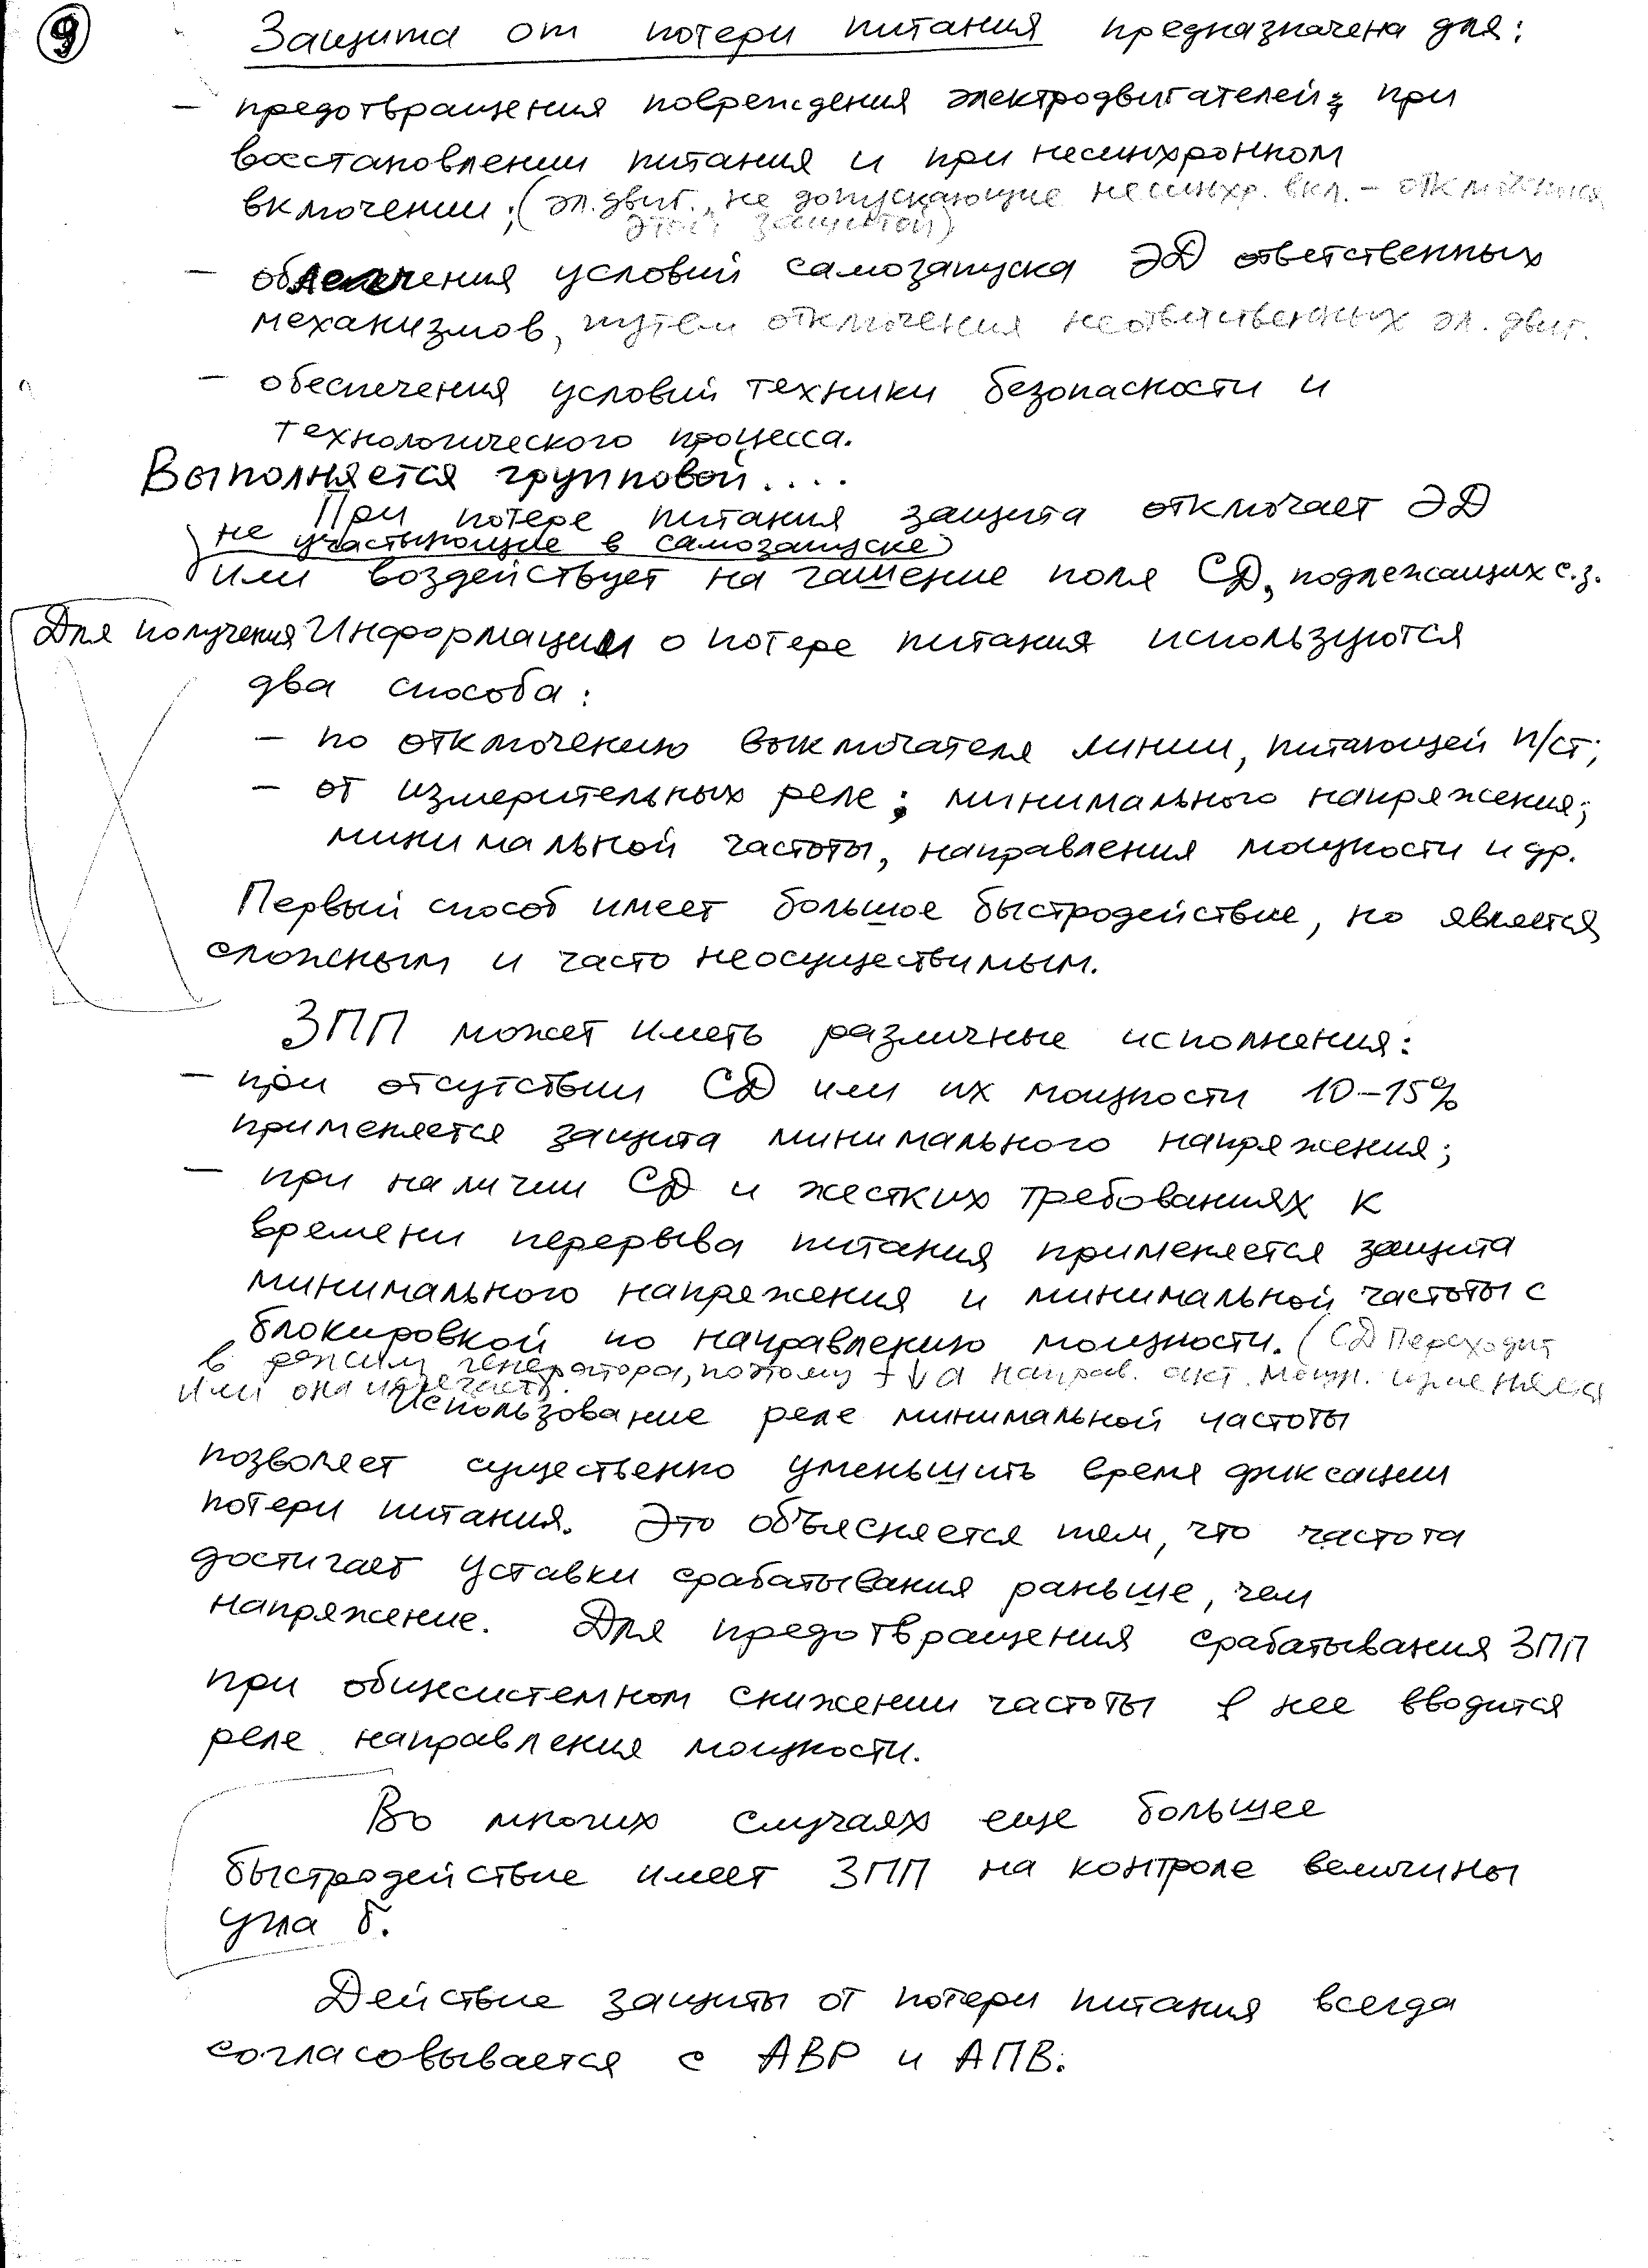 9
Защита от потери питания предназначена для:
– предотвращения повреждения электродвигателей при
восстановлении питания и при несинхронном
включении; (эл.двиг., не допускающие несинхр. вкл. – отключения
этой защитой)
– облегчения условий самозапуска ЭД ответственных
механизмов, путем отключения неответственных эл. двиг.
– обеспечения условий техники безопасности и
технологического процесса.
Выполняется групповой....
При потере питания защита отключает ЭД
(не участвующие в самозапуске)
или воздействует на гашение поля СД, подлежащих с.з.
Для получения Информации о потере питания используются
два способа:
– по отключению выключателя линии, питающей п/ст;
– от измерительных реле: минимального напряжения;
минимальной частоты, направления мощности и др.
Первый способ имеет большое быстродействие, но является
сложным и часто неосуществимым.
ЗПП может иметь различные исполнения:
– при отсутствии СД или их мощности 10–15%
применяется защита минимального напряжения;
– при наличии СД и жестких требованиях к
времени перерыва питания применяется защита
минимального напряжения и минимальной частоты с
блокировкой по направлению мощности. (СД переходит
в режим генератора, поэтому f↓ а направ. акт. мощн. изменяется
или она
Использование реле минимальной частоты
позволяет существенно уменьшить время фиксации
потери питания. Это объясняется тем, что частота
достигает уставки срабатывания раньше, чем
напряжение. Для предотвращения срабатывания ЗПП
при общесистемном снижении частоты в нее вводится
реле направления мощности.
Во многих случаях еще большее
быстродействие имеет ЗПП на контроле величины
угла δ.
Действие защиты от потери питания всегда
согласовывается с АВР и АПВ.